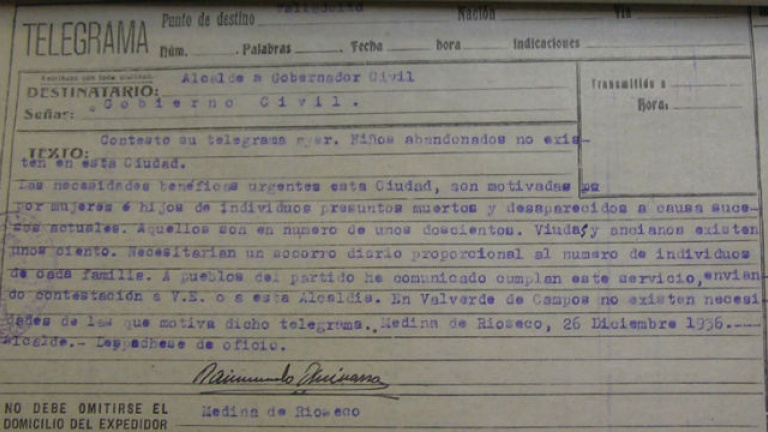 TELEGRAMA
Punto de destino Valladolid Nación Vía
Núm. Palabras Fecha hora Indicaciones
DESTINATARIO: Alcalde a Gobernador Civil
Señas: Gobierno Civil.
Transmitido a
Hora:
TEXTO: Contesto su telegrama ayer. Niños abandonados no exis-
ten en esta Ciudad.
Las necesidades benéficas urgentes esta Ciudad, son motivadas
por mujeres é hijos de individuos presuntos muertos y desaparecidos a causa suce-
sos actuales. Aquellos son en número de unos doscientos. Viudas y ancianos existen
unos ciento. Necesitarían un socorro diario proporcional al número de individuos
de cada familia. A pueblos del partido he comunicado cumplan este servicio, envian
do contestación a V.E. o a esta Alcaldía. En Valverde de Campos no existen necesi
dades de las que motiva dicho telegrama. Medina de Rioseco, 26 Diciembre 1936.----
Alcalde.- Despáchese de oficio.
Raimundo
NO DEBE OMITIRSE EL
DOMICILIO DEL EXPEDIDOR
Medina de Rioseco